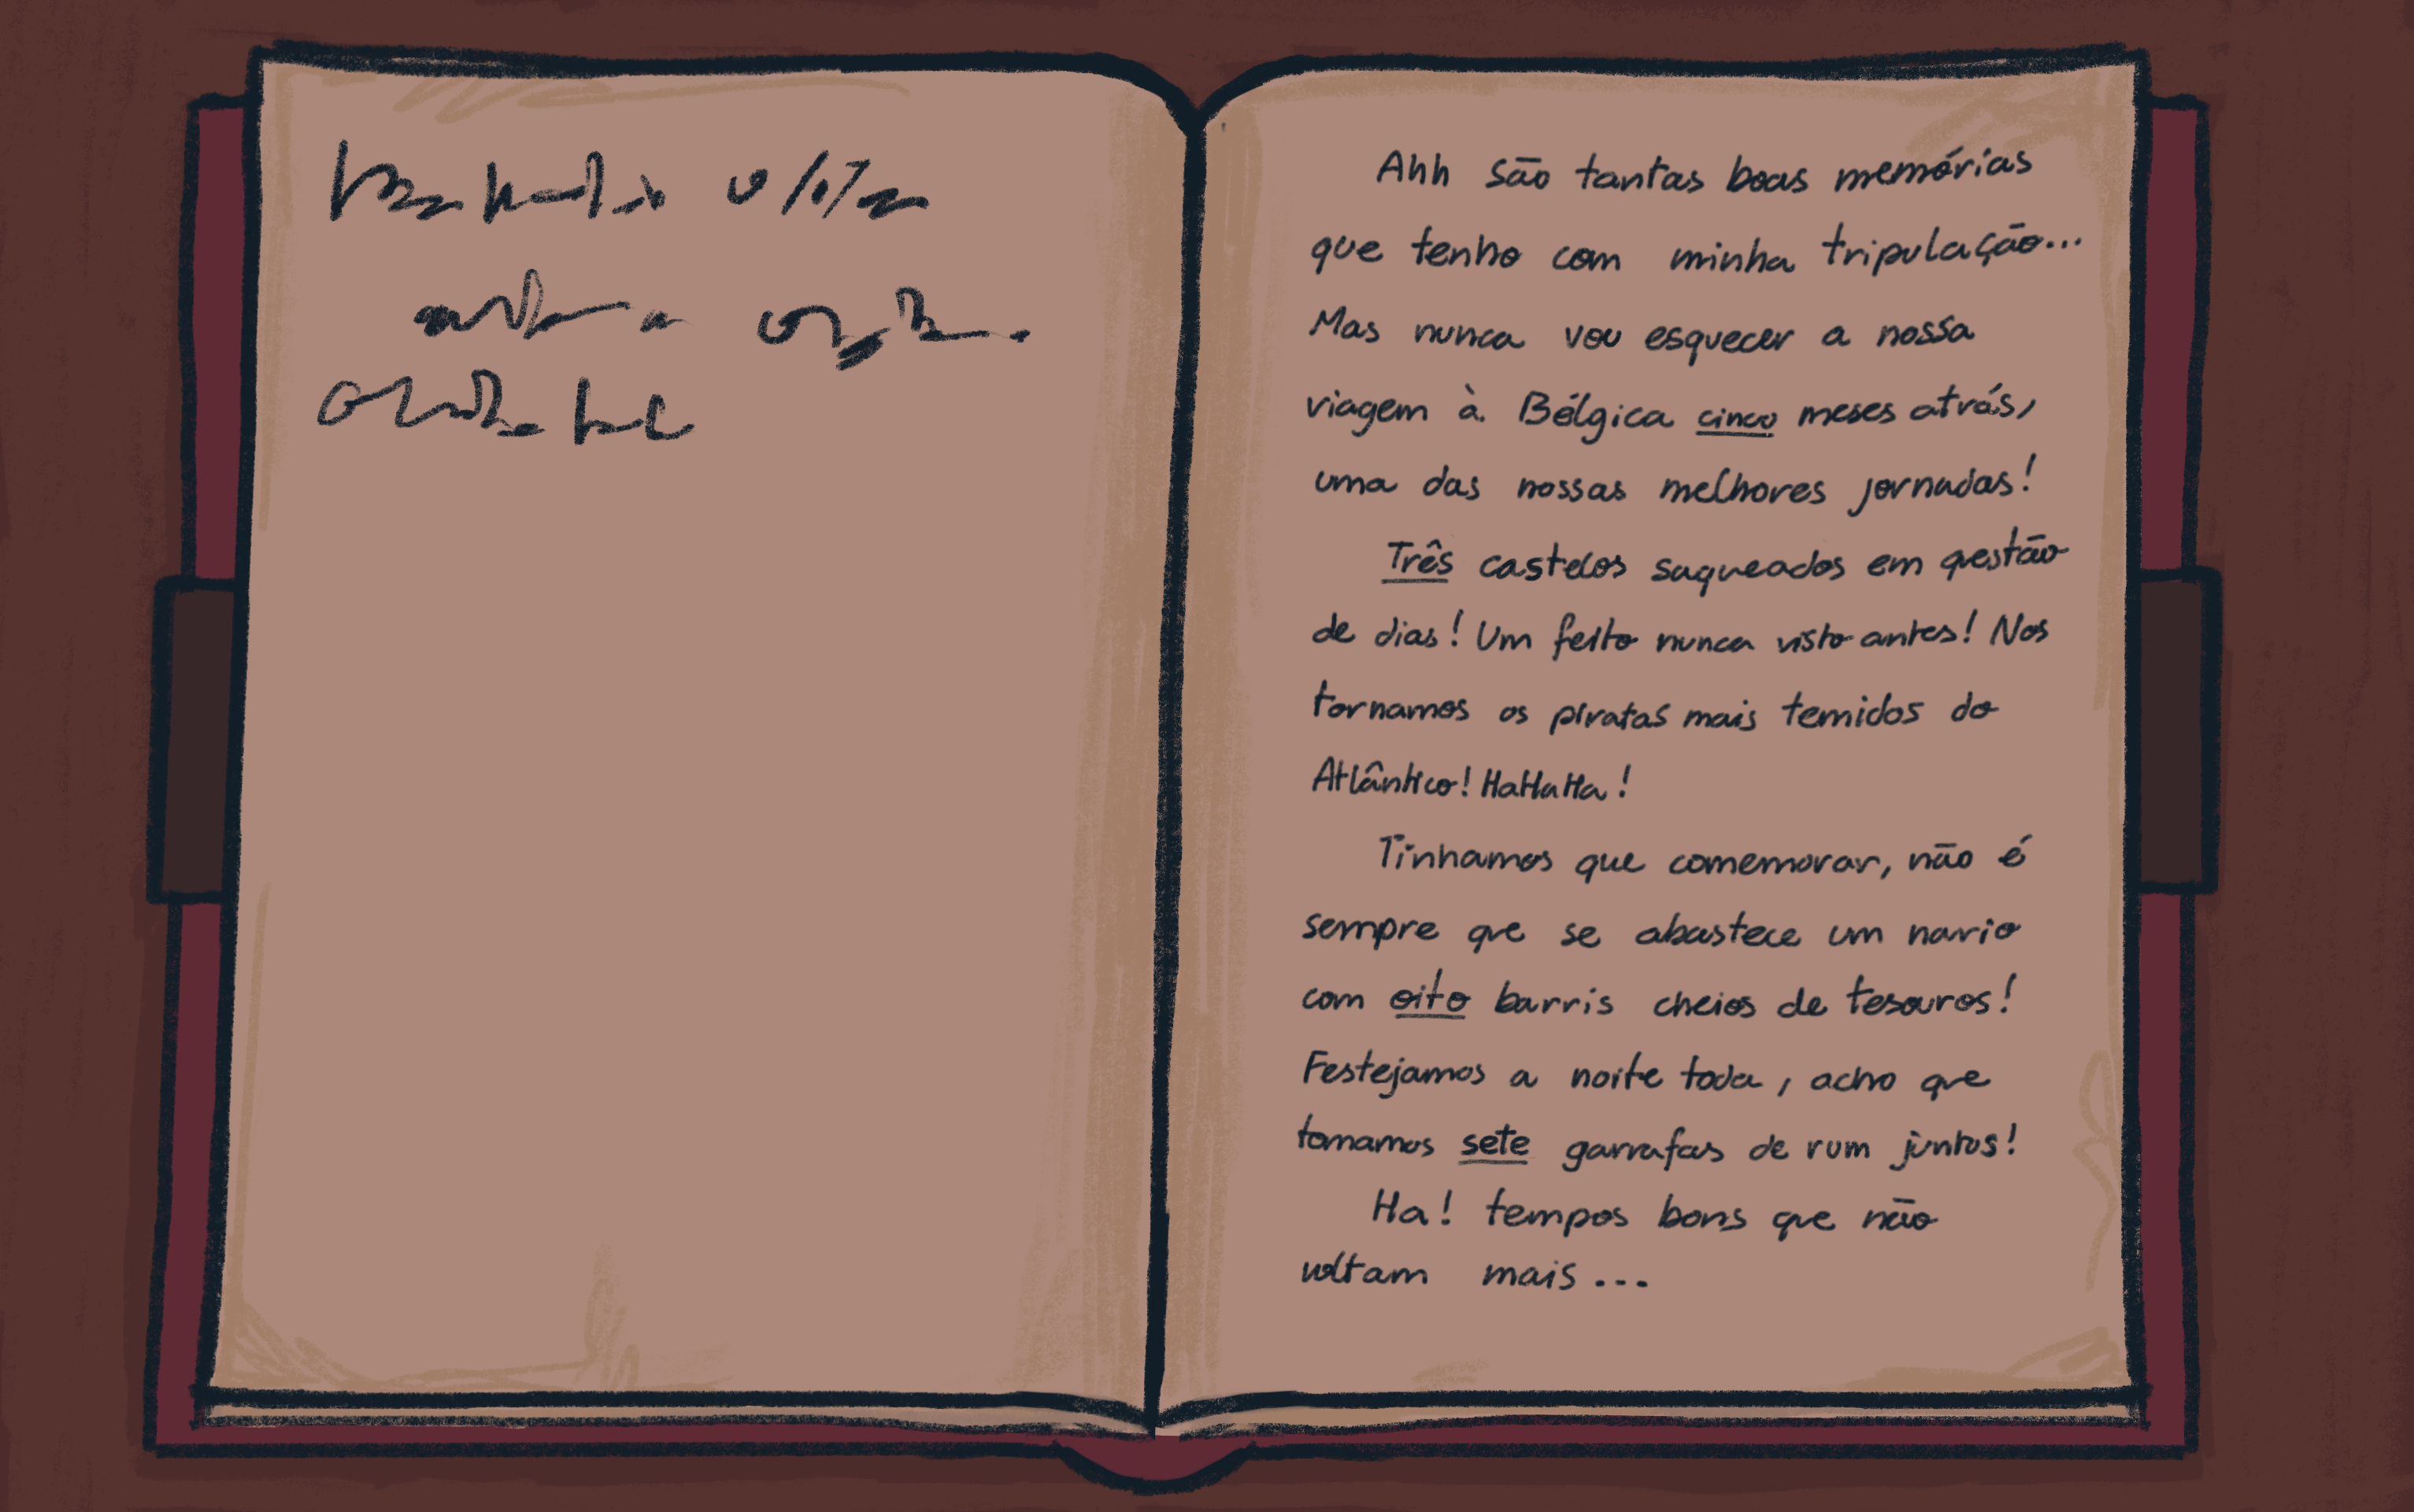 Ahh são tantas boas memórias
que tenho com minha tripulação...
Mas nunca vou esquecer a nossa
viagem à Bélgica cinco meses atrás,
uma das nossas melhores jornadas!
Três castelos saqueados em questão
de dias! Um feito nunca visto antes! Nos
tornamos os piratas mais temidos do
Atlântico! HaHaHa!
Tinhamos que comemorar, não é
sempre que se abastece um navio
com oito barris cheios de tesouros!
Festejamos a noite toda, acho que
tomamos sete garrafas de rum juntos!
Ha! tempos bons que não
voltam mais...